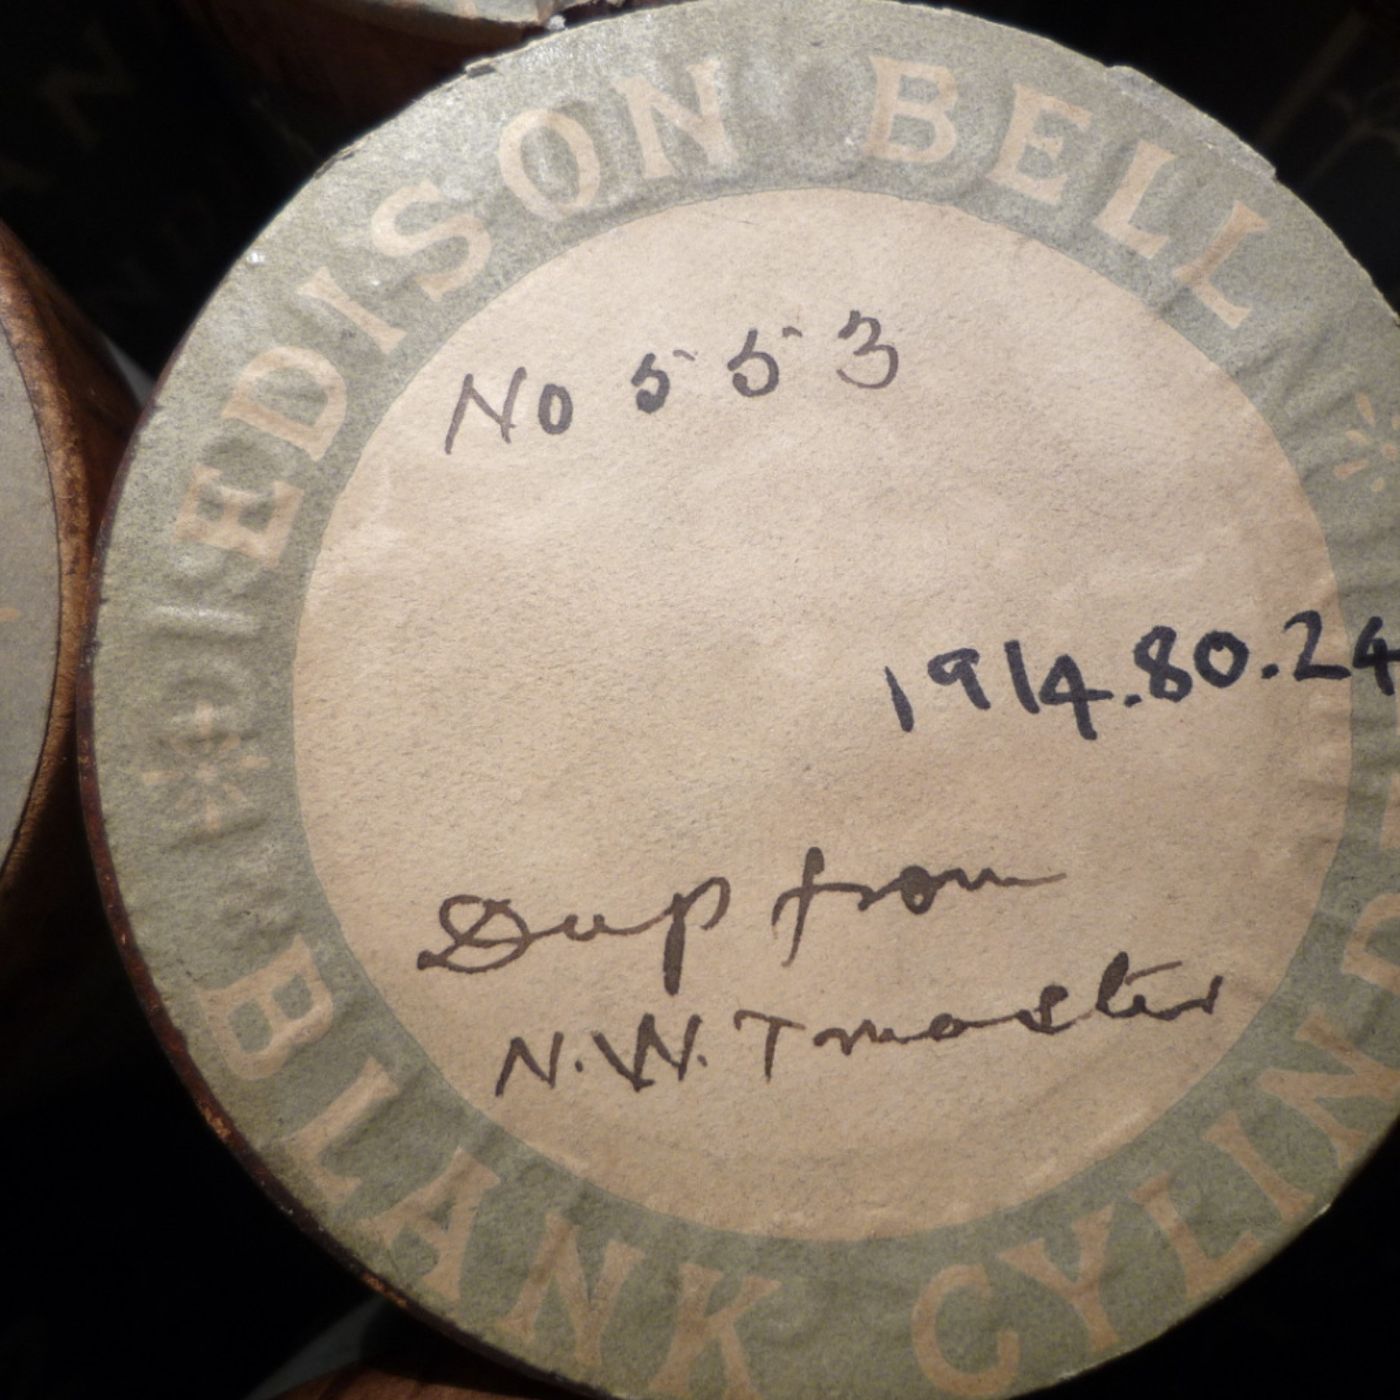 EDISON BELL
No 553
1914.80.24
Dup from
N.W.T master
BLANK CYLINDE